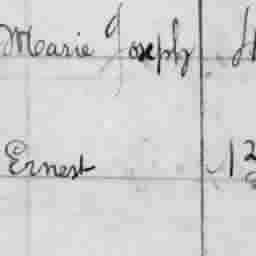 Marie Joseph
Ernest 12